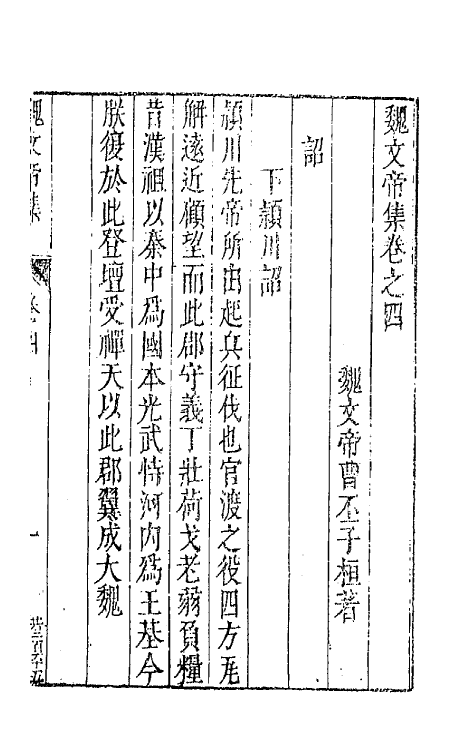 魏文帝集卷之四
魏文帝曹丕子桓著
詔
下潁川詔
潁川先帝所由起兵征伐也官渡之役四方瓦
解遠近顧望而此郡守義丁壯荷戈老弱負糧
昔漢祖以秦中爲國本光武恃河內爲王基今
朕復於此登壇受禪天以此郡翼成大魏
魏文帝集
卷四
一